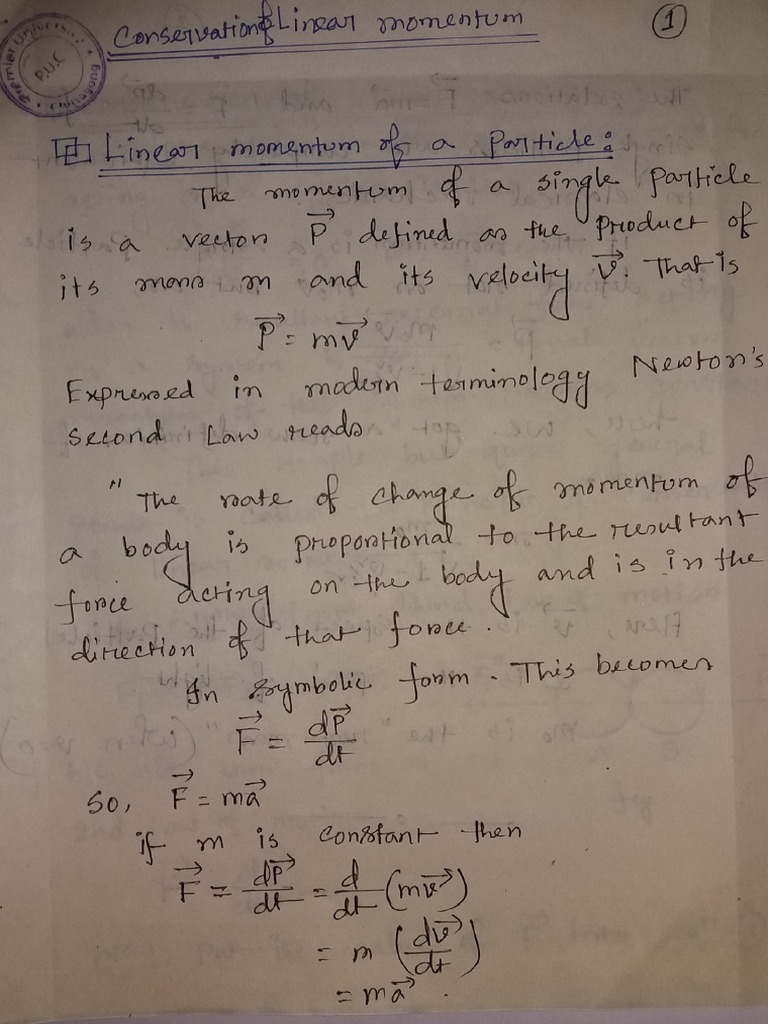 Conservation of Linear momentum
1
Premier University
P.U.C
Linear momentum of a Particle:
The momentum of a single particle
is a vector P⃗ defined as the product of
its mass m and its velocity v⃗. That is
P⃗ = mv⃗
Expressed in modern terminology Newton's
Second Law reads
" The rate of change of momentum of
a body is proportional to the resultant
force acting on the body and is in the
direction of that force.
In symbolic form. This becomes
F⃗ = dP⃗/dt
So, F⃗ = ma⃗
if m is constant then
F⃗ = dP⃗/dt = d/dt (mv⃗)
= m (dv⃗/dt)
= ma⃗.